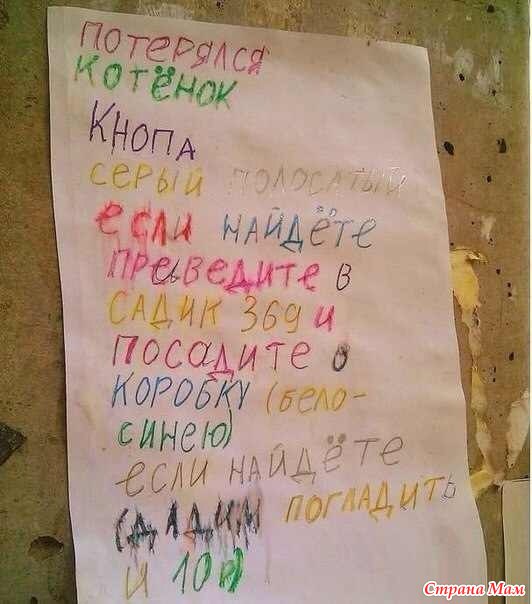 ПОТЕРЯЛСЯ
КОТЁНОК
КНОПА
СЕРЫЙ ПОЛОСАТЫЙ
ЕСЛИ НАЙДЁТЕ
ПРЕВЕДИТЕ В
САДИК 369 И
ПОСАДИТЕ В
КОРОБКУ (БЕЛО-
СИНЕЮ)
ЕСЛИ НАЙДЁТЕ
ДАДИМ ПОГЛАДИТЬ
И 10 р
Страна Мам